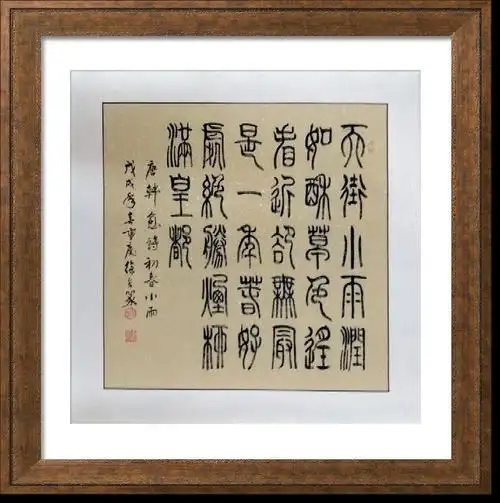 天街小雨潤
如酥草色遙
看近卻無最
是一年春好
處絕勝煙柳
滿皇都
唐韓愈詩初春小雨
戊戌年春重慶